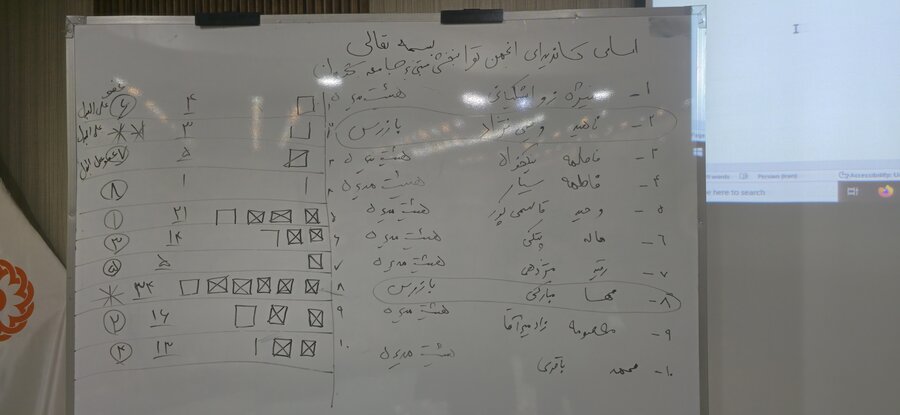 بسمه تعالی
اسامی کاندیدای انجمن توانبخشی مبتنی جامعه
۱- منیژه هیئت مدیره ۱ ۴ ۶ عضو علی البدل
۲- ناهید بازرس ۲ ۳ علی البدل
۳- فاطمه نیکخواه هیئت مدیره ۳ ۵ ۷ عضو علی البدل
۴- فاطمه ستار هیئت مدیره ۴ ۱ ۸
۵- وحید قاسمی پور هیئت مدیره ۵ ۲۱ ۱
۶- هاله هیئت مدیره ۶ ۱۴ ۳
۷- هیئت مدیره ۷ ۵ ۵
۸- مهسا بازرس ۸ ۳۴
۹- معصومه زادمیرآقا هیئت مدیره ۹ ۱۶ ۲
۱۰- محمد باقری هیئت مدیره ۱۰ ۱۳ ۴
Page
words
Persian (Iran)
Accessibility: Un
here to search